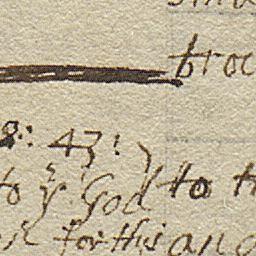 broc
8: 43: )
to yͤ God to t
for this and